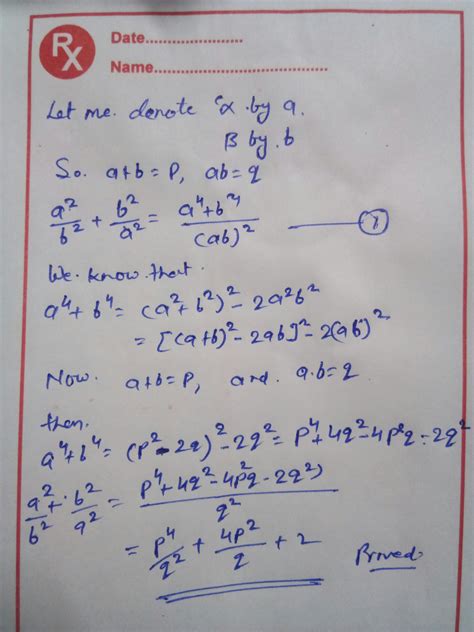 Rx
Date.......................
Name.......................................
Let me. denote α .by a.
B by. b
So. a+b = P, ab = q
a²/b² + b²/a² = (a⁴+b⁴)/(ab)² ——— (1)
We. know that.
a⁴ + b⁴ = (a² + b²)² - 2a²b²
= [(a+b)² - 2ab]² - 2(ab)²
Now. a+b = P, and. a.b = q
then.
a⁴+b⁴ = (P² - 2q)² - 2q² = P⁴ + 4q² - 4P²q - 2q²
a²/b² + b²/a² = (P⁴ + 4q² - 4P²q - 2q²)/q²
= P⁴/q² + 4P²/q + 2 Proved.